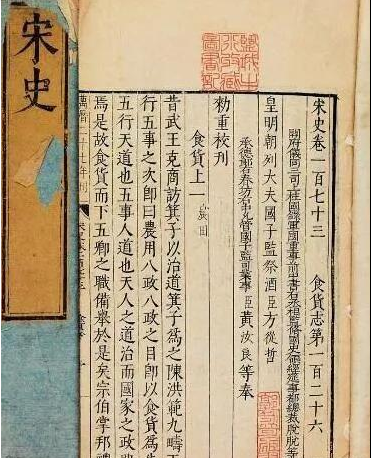 宋史
宋史卷一百七十三　食貨志第一百二十六
開府儀同三司上柱國錄軍國重事前中書右丞相監修國史領經筵事都總裁脫脫等
皇明朝列大夫國子監祭酒臣方從哲
承德郎右春坊右中允管國子監司業事臣黃汝良等奉
勅重校刊
食貨上一 農田
昔武王克商訪箕子以治道箕子爲之陳洪範九疇
行五事之次即曰農用八政八政之目即以食貨爲
五行天道也五事人道也天人之道治而國家之政
焉是故食貨而下五卿之職備舉於是矣宗伯掌邦禮
萬曆二十七年刊